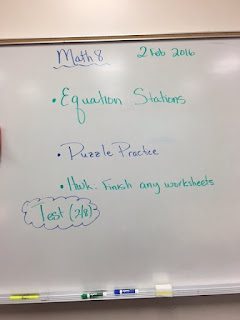 Math 8 2 Feb 2016
• Equation Stations
• Puzzle Practice
• Hwk. Finish any worksheets
Test (2/8)